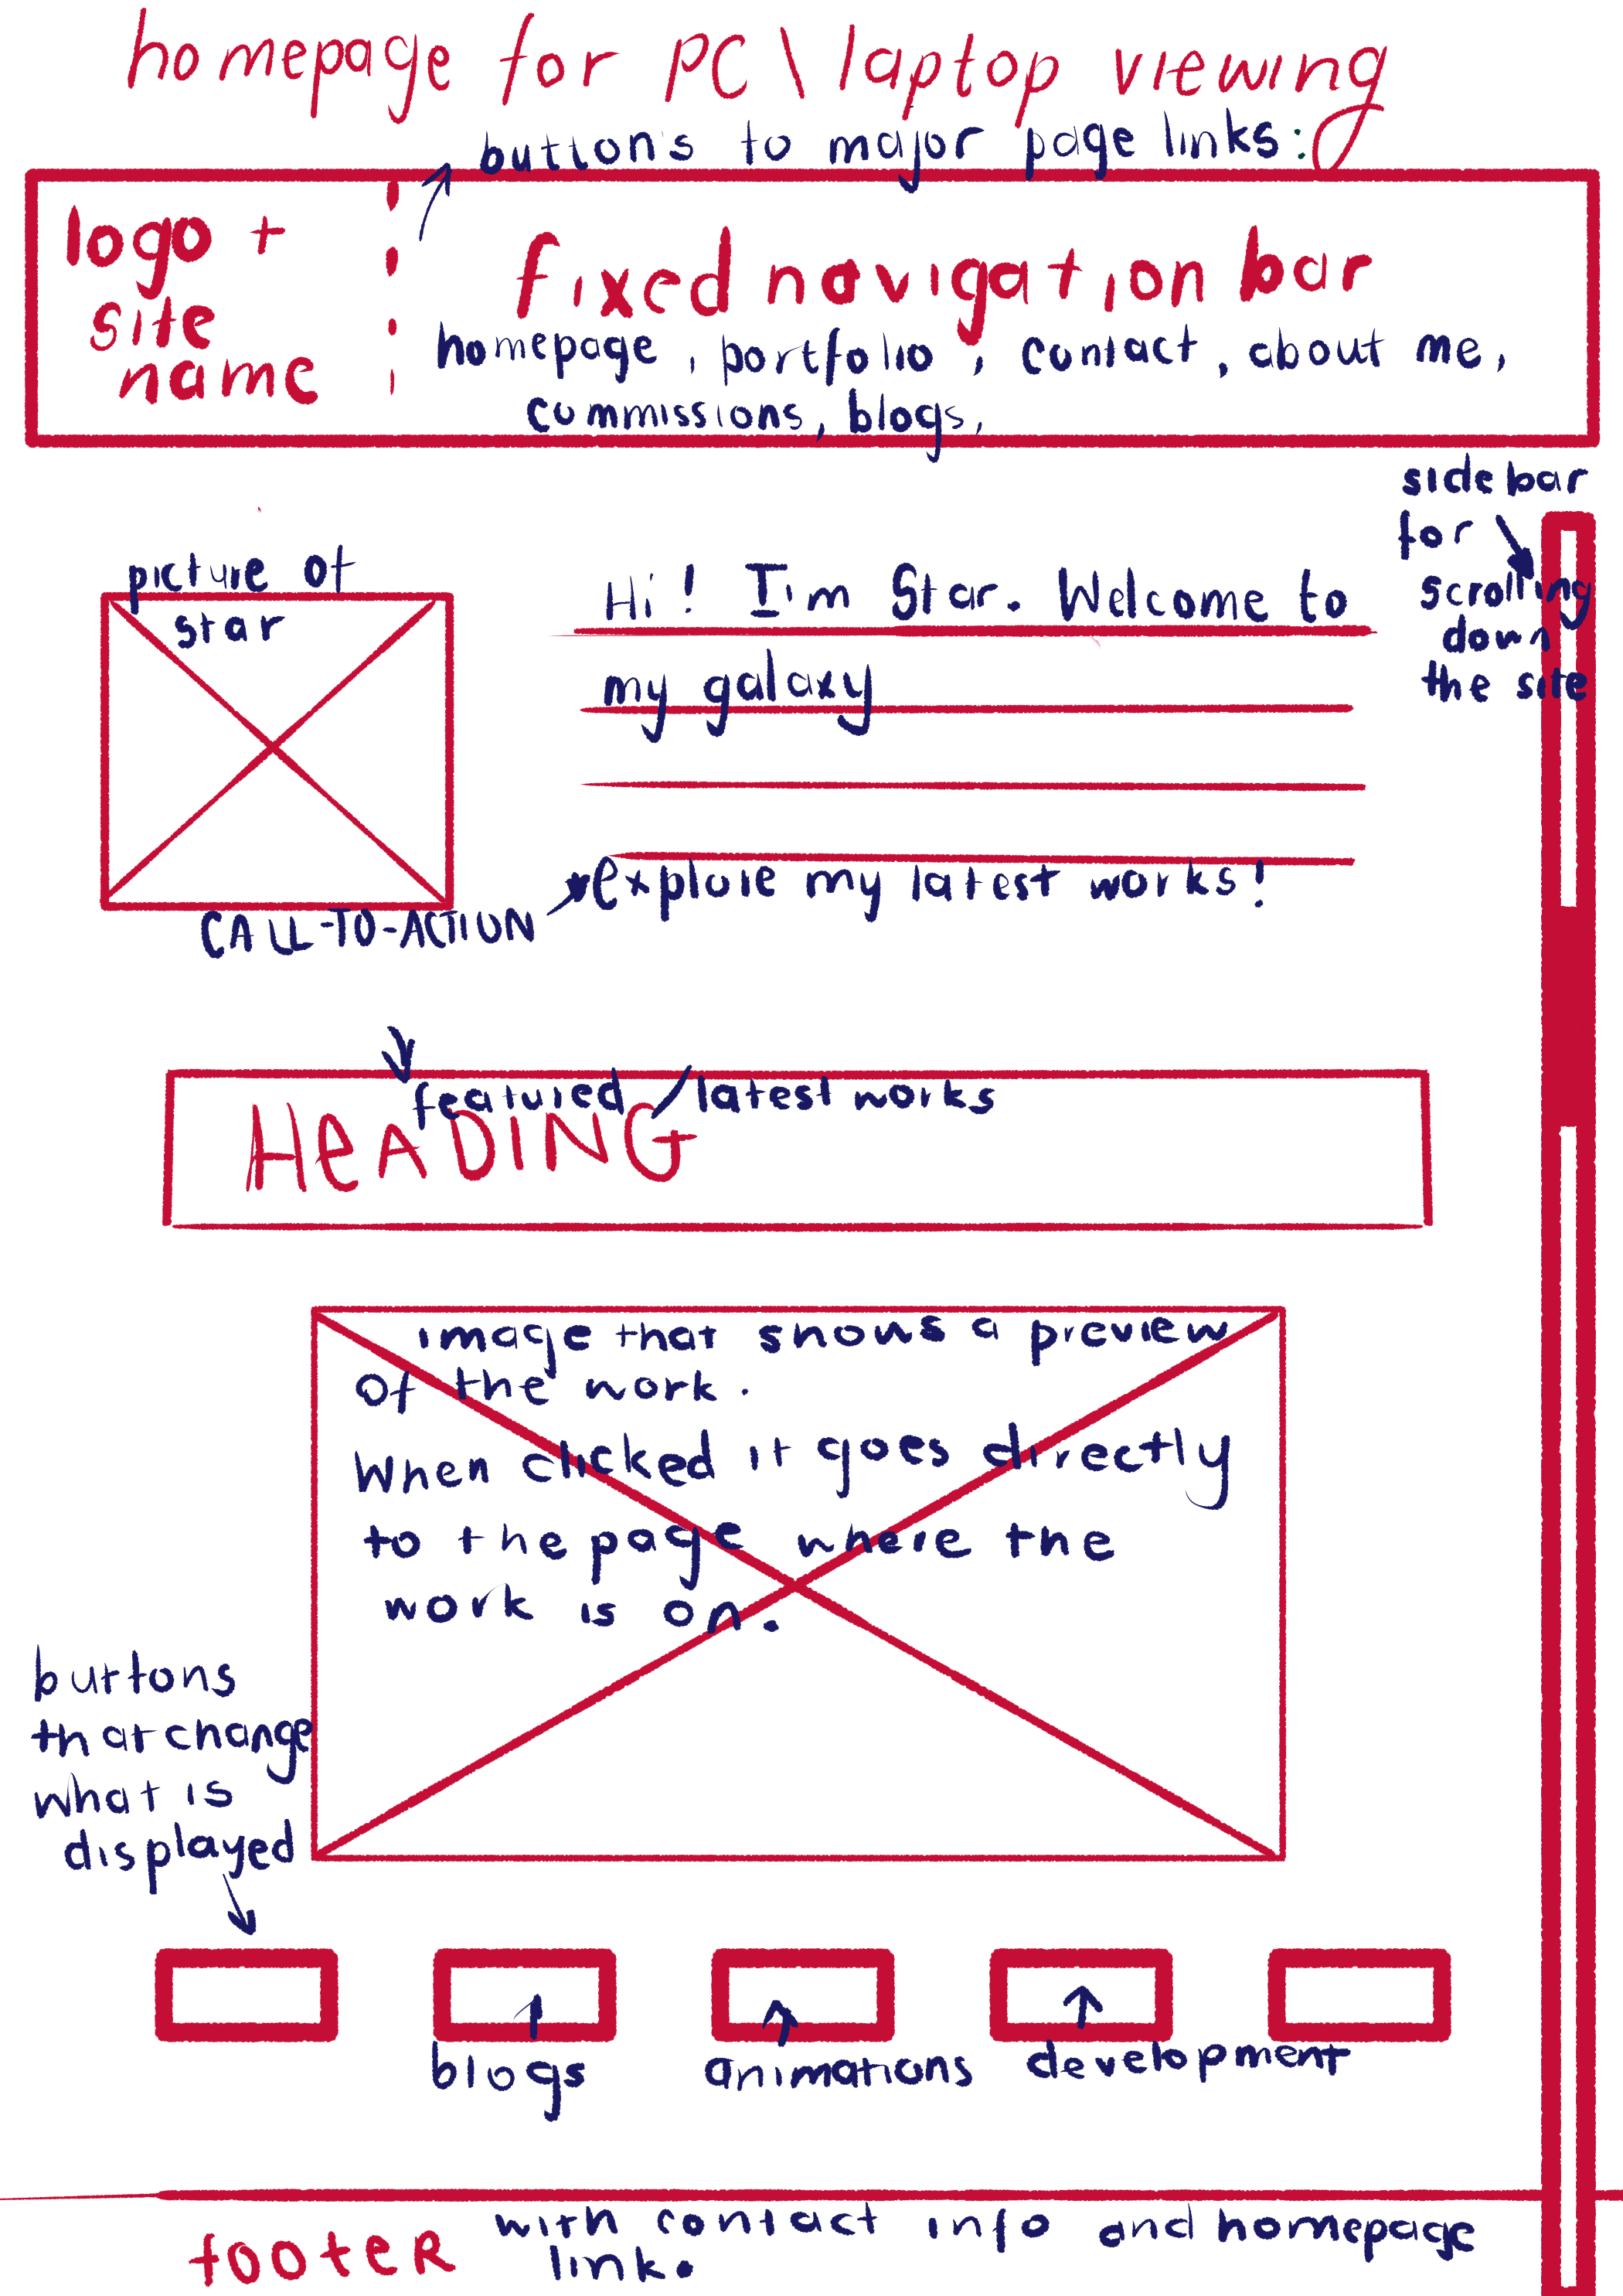 homepage for PC \ laptop viewing
buttons to major page links:
logo +
site
name
fixed navigation bar
homepage, portfolio, contact, about me,
commissions, blogs,
sidebar
for
scrolling
down
the site
picture of
star
Hi! I'm Star. Welcome to
my galaxy
explore my latest works!
CALL-TO-ACTION
featured / latest works
HEADING
image that shows a preview
of the work.
When clicked it goes directly
to the page where the
work is on.
buttons
that change
what is
displayed
blogs
animations
development
footer with contact info and homepage
link.